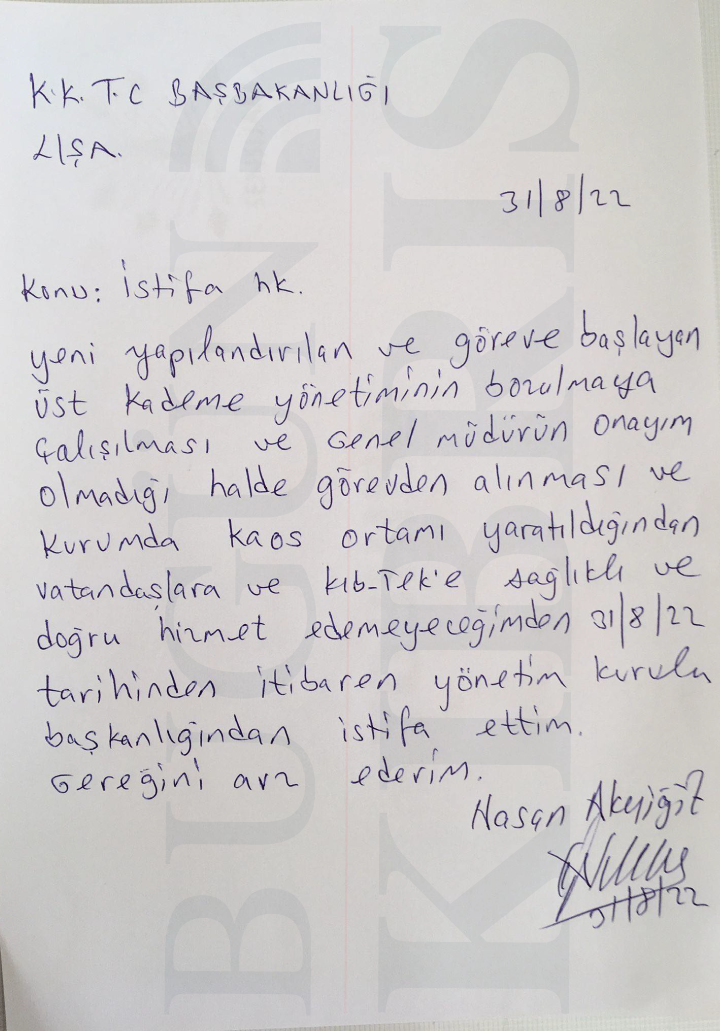 K.K.T.C BAŞBAKANLIĞI
L/ŞA.
31/8/22
Konu: İstifa hk.
yeni yapılandırılan ve göreve başlayan
üst kademe yönetiminin bozulmaya
çalışılması ve Genel müdürün onayım
olmadığı halde görevden alınması ve
kurumda kaos ortamı yaratıldığından
vatandaşlara ve kıb-Tek'e sağlıklı ve
doğru hizmet edemeyeceğimden 31/8/22
tarihinden itibaren yönetim kurulu
başkanlığından istifa ettim.
Gereğini arz ederim.
Hasan Akyiğit
31/8/22
BUGÜN
KIBRIS